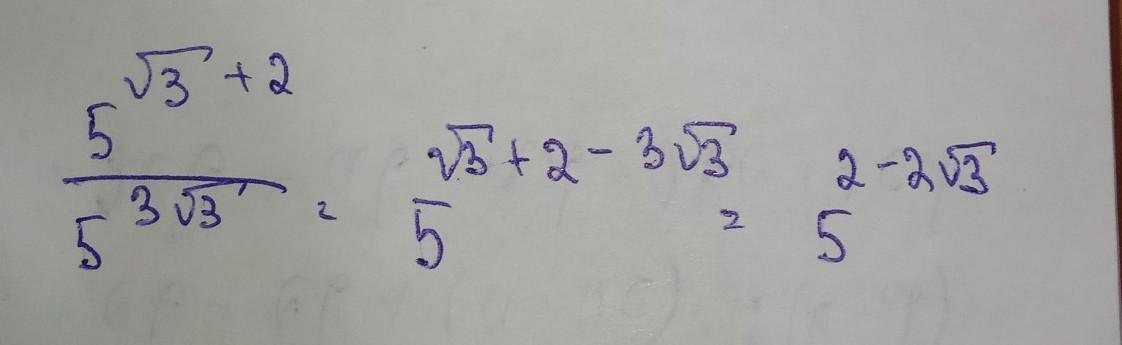 \frac{5^{\sqrt{3}+2}}{5^{3\sqrt{3}}} = 5^{\sqrt{3}+2-3\sqrt{3}} = 5^{2-2\sqrt{3}}